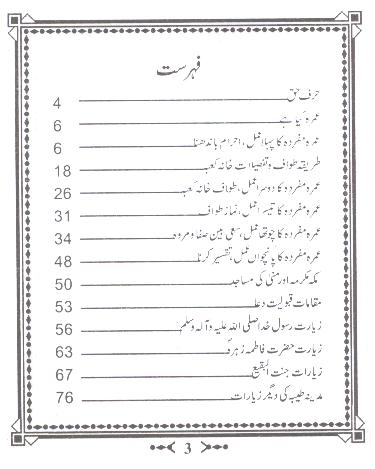 فہرست
حرف حق 4
عمرہ کیا ہے 6
عمرہ مفردہ کا پہلا عمل، احرام باندھنا 6
طریقہ طواف و تفصیلات خانہ کعبہ 18
عمرہ مفردہ کا دوسرا عمل، طواف خانہ کعبہ 26
عمرہ مفردہ کا تیسرا عمل، نماز طواف 31
عمرہ مفردہ کا چوتھا عمل، سعی بین صفا و مروہ 34
عمرہ مفردہ کا پانچواں عمل، تقصیر کرنا 48
مکہ مکرمہ اور منیٰ کی مساجد 50
مقامات قبولیت دعا 53
زیارت رسول خدا صلی اللہ علیہ وآلہ وسلم 56
زیارت حضرت فاطمہ زہرہؑ 63
زیارات جنت البقیع 67
مدینہ طیبہ کی دیگر زیارات 76
3